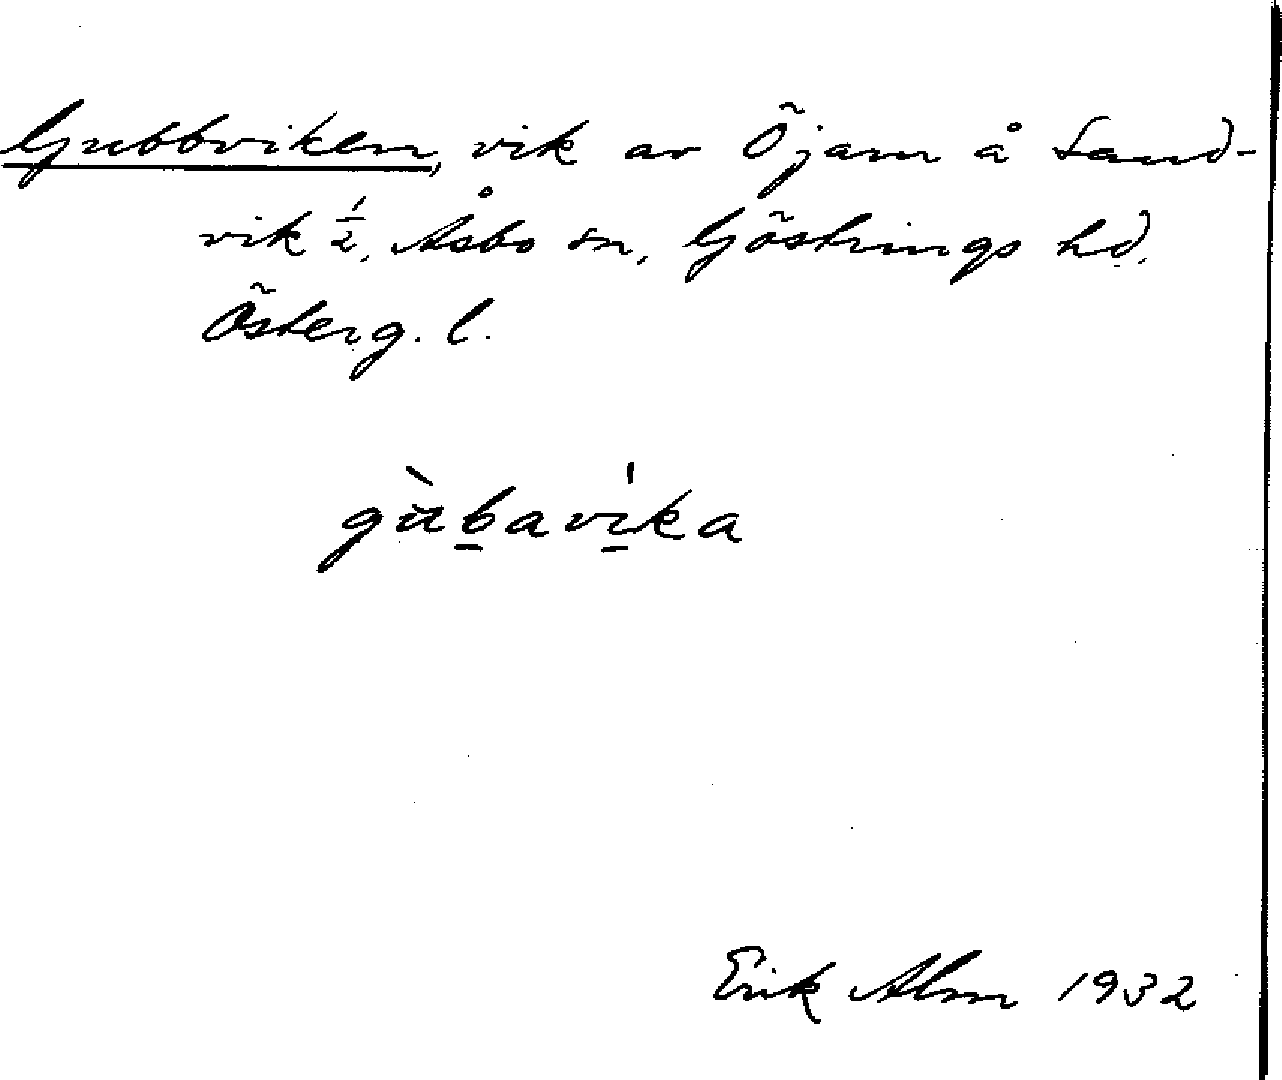 Gubbviken, vik av Öjarn å Sand-
vik 1/2, Åsbo sn, Göstrings hd,
Österg. l.
gùbavi̍ka
Erik Alm 1932